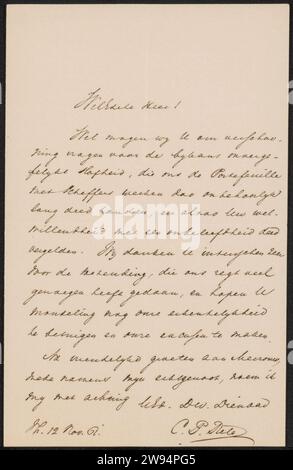 WelEdele Heer!
Wel mogen wij U om verschoo-
ning vragen voor de bijkans onverge-
felijke stofheid, die ons de Portefeuille
met Scheffers werken dus onbehoorlijk
lang deed houden, en alzoo Uw wel-
willendheid met een onbeleefdheid deed
vergelden. Wij danken U intusschen zeer
voor de toezending, die ons regt veel
genoegen heeft gedaan, en hopen U
mondeling nog onze erkentelijkheid
te betuigen en onze excusen te maken.
Na vriendelijke groeten aan Mevrouw,
mede namens mijn echtgenoot, noem ik
mij met achting UEd. Dw. Dienaar
H. 12 Nov. 61.
C. P. Tiele
alamy
Image ID: 2W94PG5
www.alamy.com